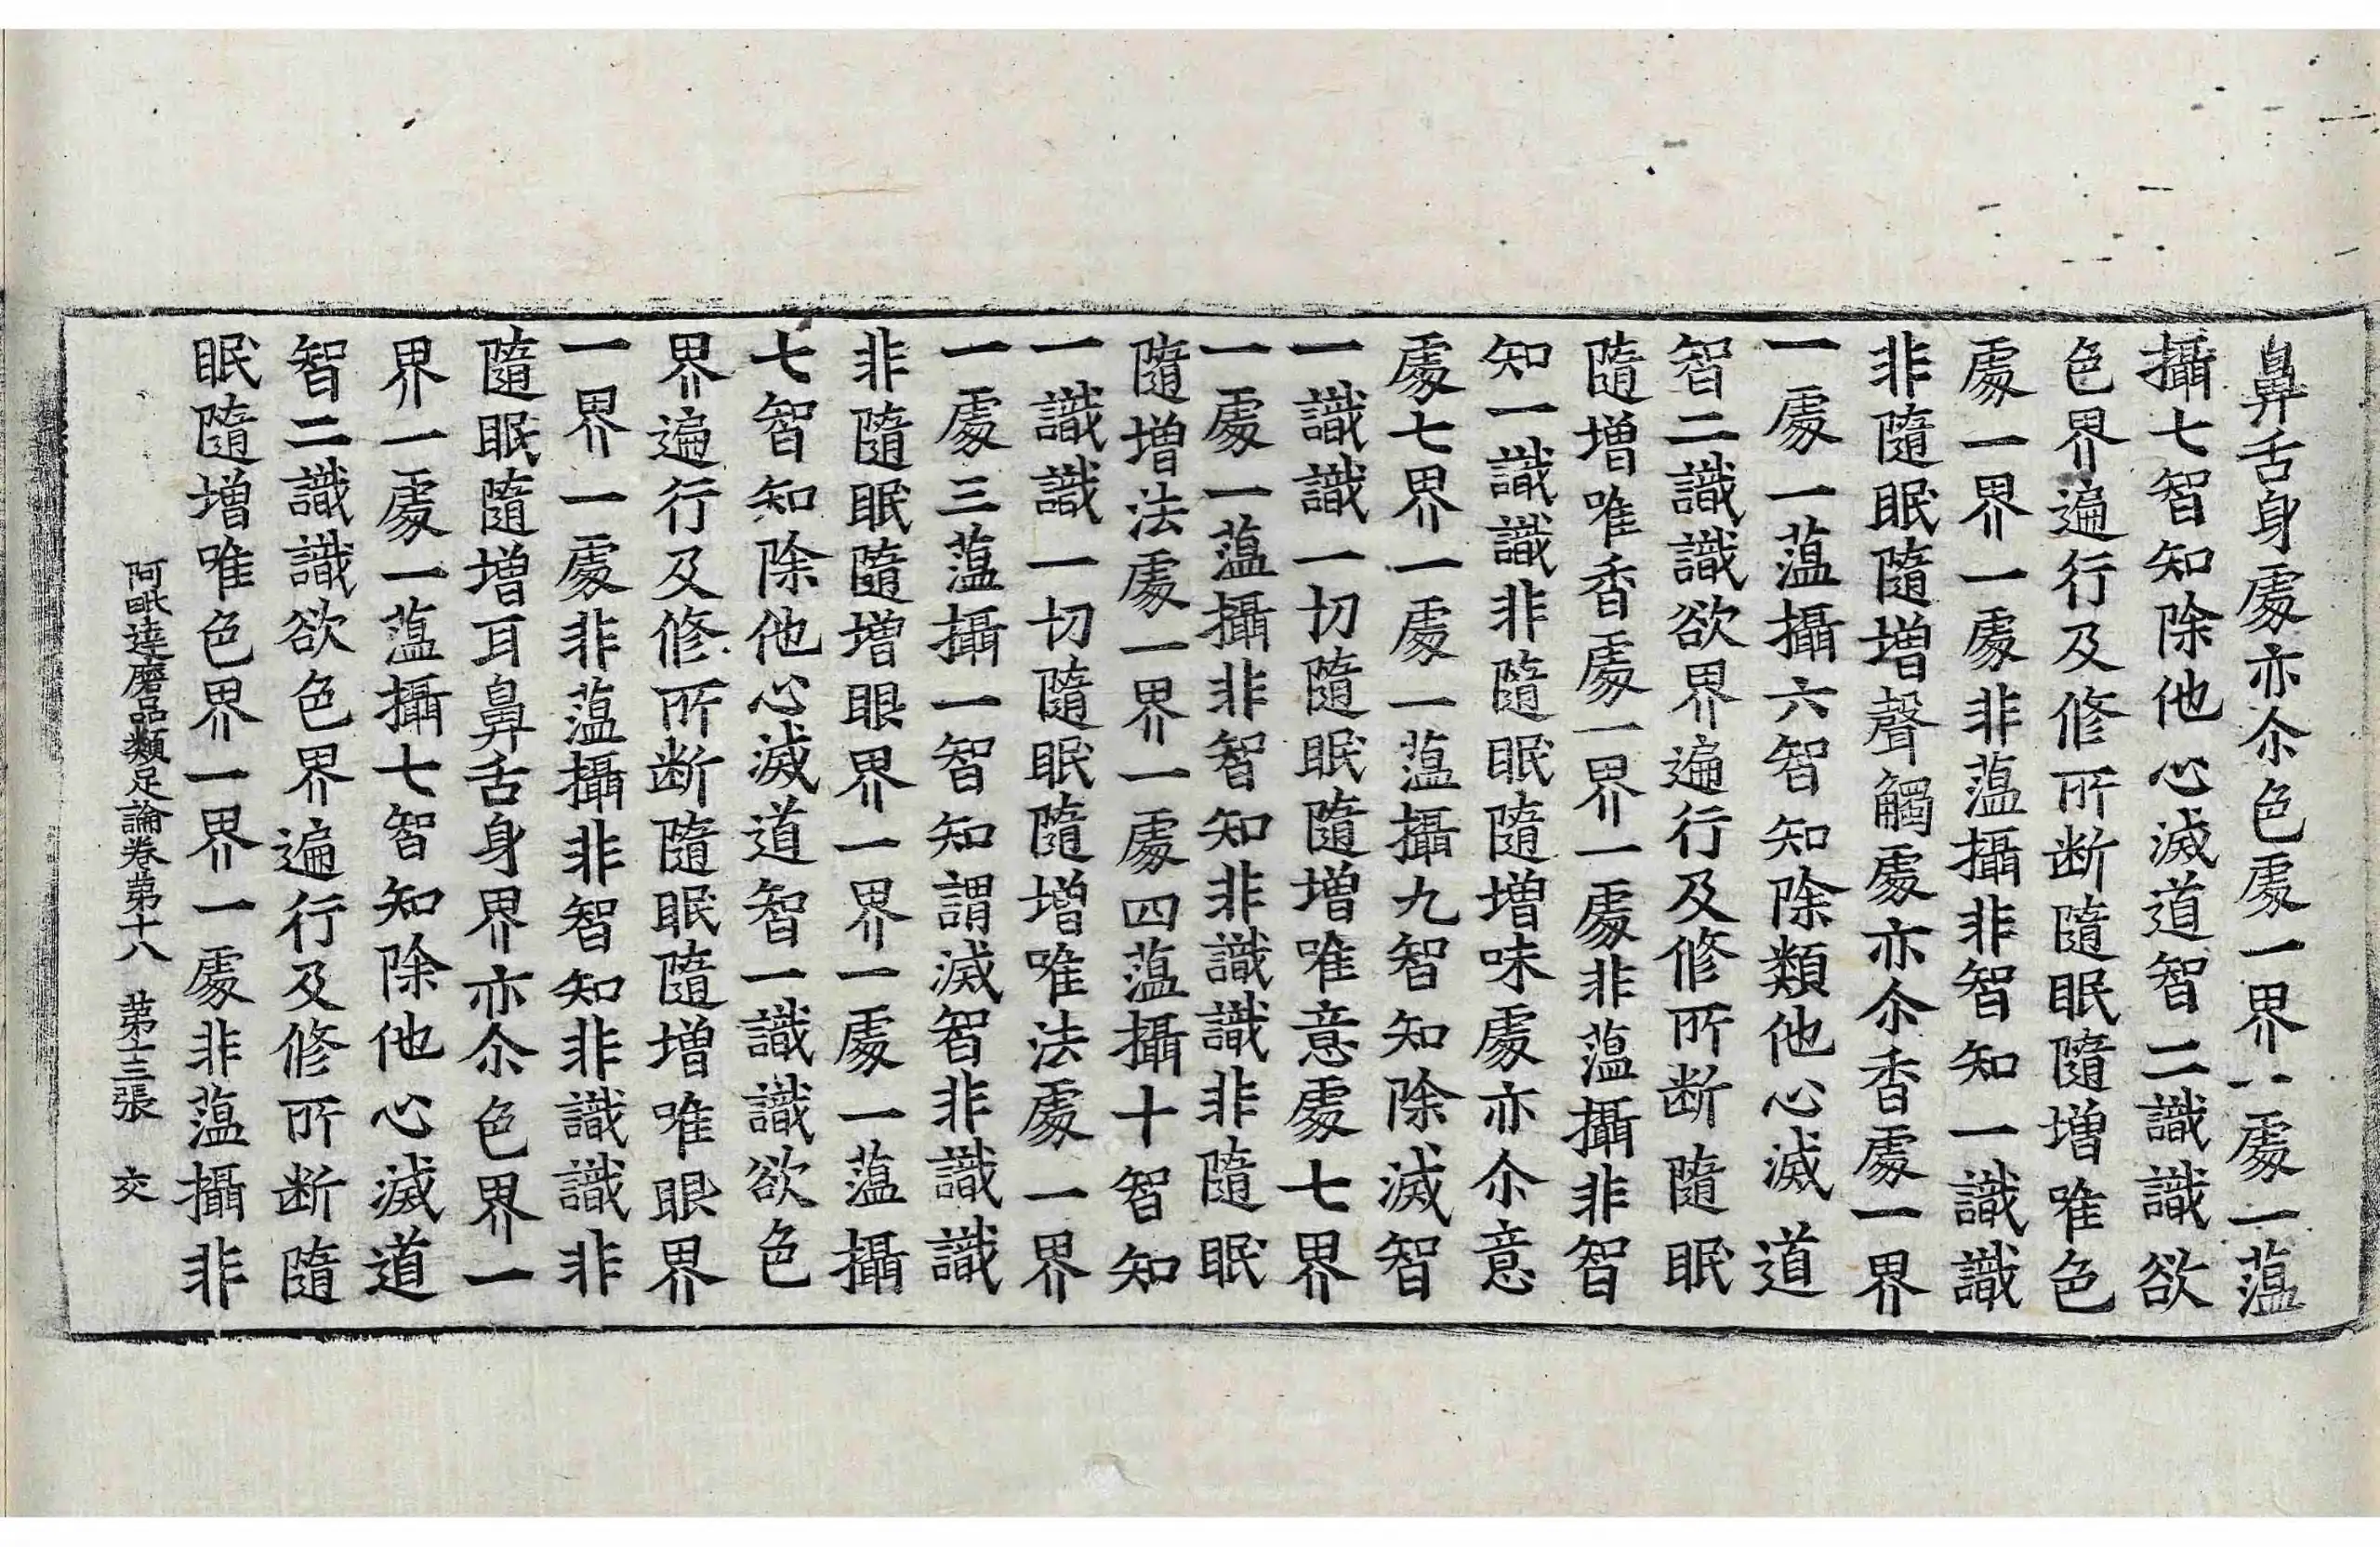 鼻舌身處亦尒色處一界一處一蕰
攝七智知除他心滅道智二識識欲
色界遍行及修所断隨眠隨增唯色
處一界一處非蕰攝非智知一識識
非隨眠隨增聲觸處亦尒香處一界
一處一蕰攝六智知除類他心滅道
智二識識欲界遍行及修所断隨眠
隨增唯香處一界一處非蕰攝非智
知一識識非隨眠隨增味處亦尒意
處七界一處一蕰攝九智知除滅智
一識識一切隨眠隨增唯意處七界
一處一蕰攝非智知非識識非隨眠
隨增法處一界一處四蕰攝十智知
一識識一切隨眠隨增唯法處一界
一處三蕰攝一智知謂滅智非識識
非隨眠隨增眼界一界一處一蕰攝
七智知除他心滅道智一識識欲色
界遍行及修所断隨眠隨增唯眼界
一界一處非蕰攝非智知非識識非
隨眠隨增耳鼻舌身界亦尒色界一
界一處一蕰攝七智知除他心滅道
智二識識欲色界遍行及修所断隨
眠隨增唯色界一界一處非蕰攝非
阿毗達磨品類足論卷第十八 第十三張 交